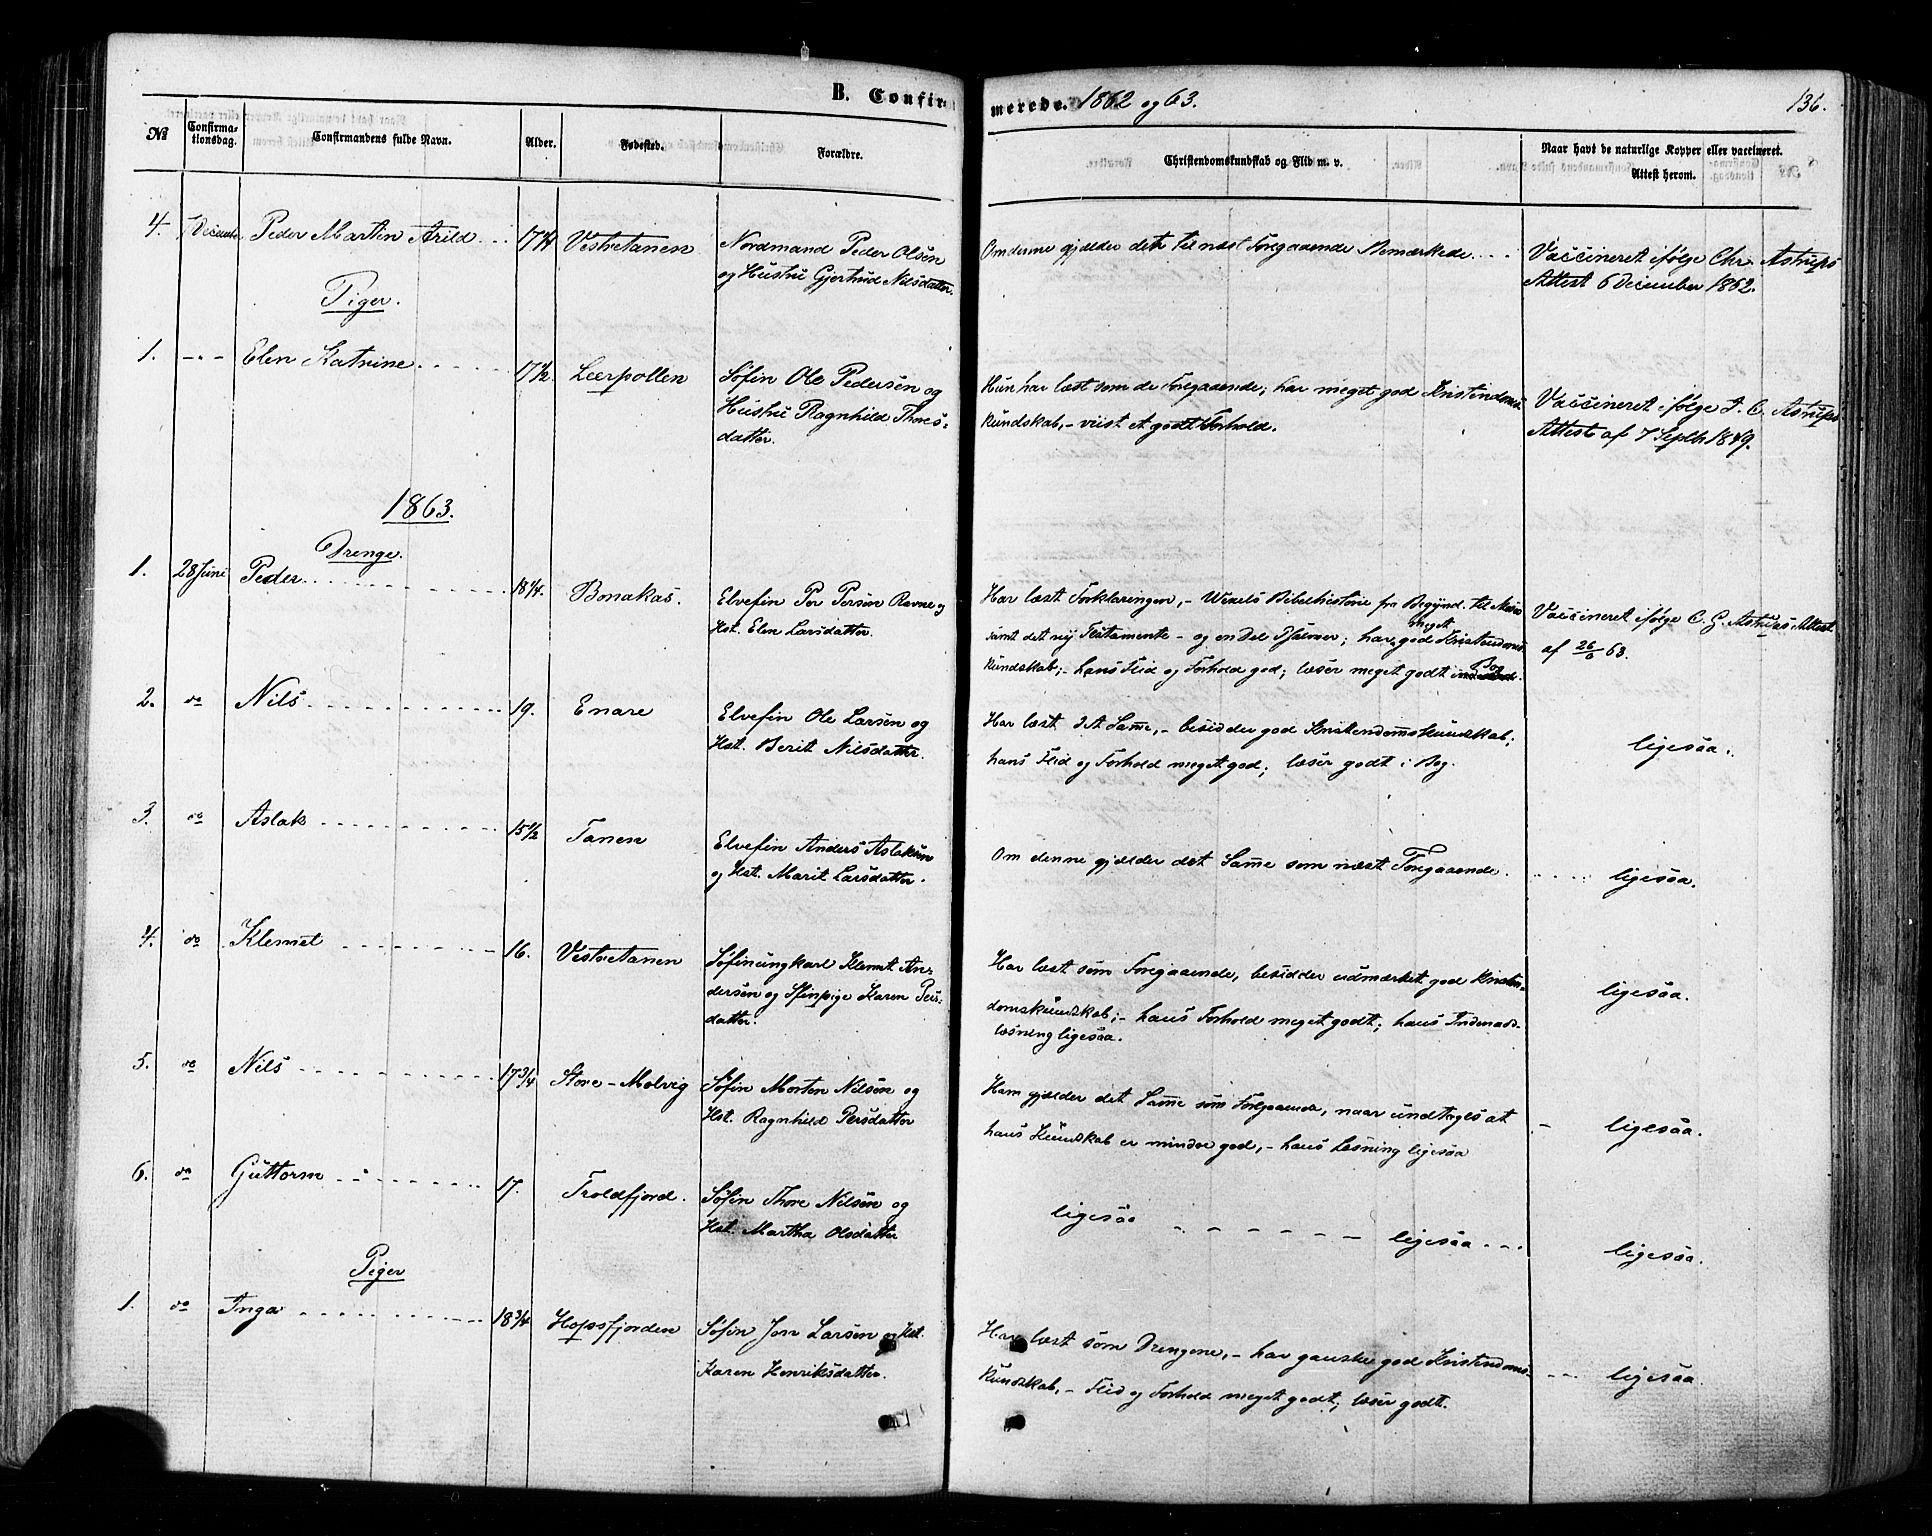 B. Confirmerede. 1862 og 63.
136.
No
Confirmationsdag.
Confirmandens fulde Navn.
Alder.
Fødested.
Forældre.
Christendomskundskab og Flid m. v.
Naar havt de naturlige Kopper eller vaccineret.
Attest herom.
4. Decembr Peder Martin Arild 17 1/4 Vestretanen
Nordmand Peder Olsen
og Hustru Gjertrud Nilsdatter.
Om denne gjælder det til næst Foregaaende Bemærkede.
Vaccineret ifølge Chr. Astrups
Attest 6 December 1862.
Piger.
1. -"- Elen Katrine 17 1/2. Leerpollen
Søfin Ole Pedersen og
Hustru Ragnhild Thores-
datter.
Hun har læst som de Foregaaende; har meget god Kristendoms
kundskab, - viist et godt Forhold.
Vaccineret ifølge Astrups
Attest af 7 Septb. 1849.
1863.
Drenge.
1. 28 Juni Peder 18 1/4. Bonakas.
Elvefin Per Persen Ravne og
Hst. Elen Larsdatter.
Har læst Forklaringen, - Wexels Bibelhistorie fra Begynd. til
samt det ny Testamente - og en Del Psalmer; har meget god Kristendoms
kundskab; - hans Flid og Forhold god; læser meget godt i Bog.
Vaccineret ifølge C. G. Astrups Attest
af 26/6 63.
2. do Nils 19. Enare
Elvefin Ole Larsen og
Hst. Berit Nilsdatter.
Har læst det Samme, - besidder god Kristendomskundskab;
hans Flid og Forhold meget god; læser godt i Bog.
ligesaa.
3. do Aslak 15 1/2 Tanen
Elvefin Anders Aslaksen
og Hst. Marit Larsdatter.
Om denne gjælder det Samme som næst Foregaaende.
ligesaa.
4. do Klemet 16. Vestretanen
Søfinungkarl Klemet An-
dersen og Sfinpige Karen Pers-
datter.
Har læst som Foregaaende, besidder udmærket god Kristen-
domskundskab; - hans Forhold meget godt; hans Indenads-
læsning ligesaa.
ligesaa.
5. do Nils 17 3/4 Store-Molvig
Søfin Morten Nilsen og
Hst. Ragnhild Persdatter
Ham gjælder det Samme som Foregaaende, naar undtages at
hans Kundskab er mindre god, - hans Læsning ligesaa
ligesaa.
6. do Guttorm 17. Troldfjord.
Søfin Thore Nilsen og
Hst. Martha Olsdatter
ligesaa ligesaa
ligesaa.
Piger
1. do Inga 18 3/4 Hopsfjorden
Søfin Jon Larsen og Hst.
Karen Henriksdatter.
Har læst som Drengene, - har ganske god Kristendoms-
kundskab, - Flid og Forhold meget godt; læser godt.
ligesaa.